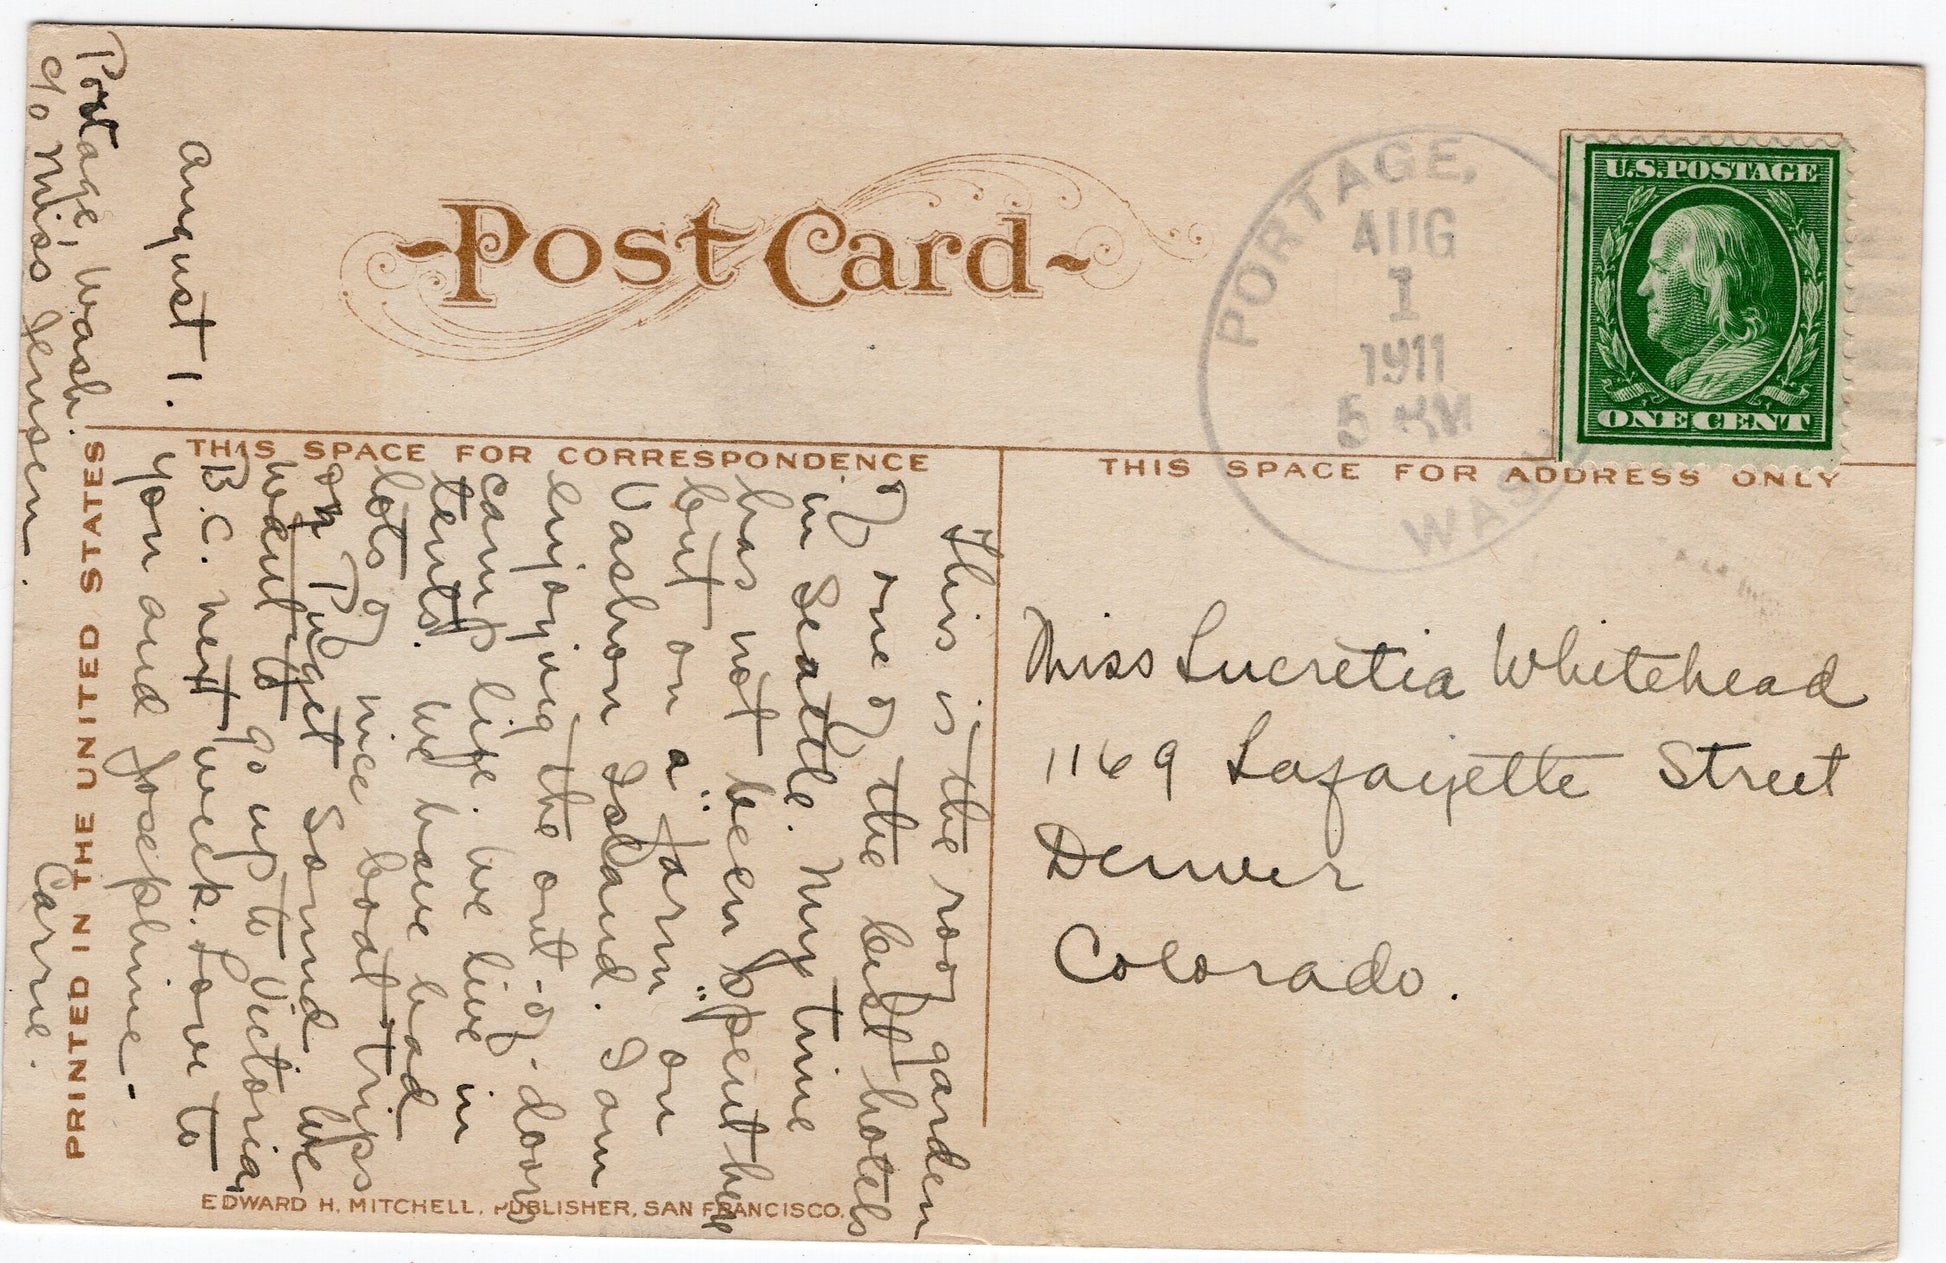 Post Card
PORTAGE,
AUG
1
1911
5 PM
WASH.
U.S. POSTAGE
ONE CENT
THIS SPACE FOR CORRESPONDENCE
THIS SPACE FOR ADDRESS ONLY
Miss Lucretia Whitehead
1169 Lafayette Street
Denver
Colorado.
Portage, Wash.
c/o Miss Jensen.
August 1.
This is the roof garden
of one of the best hotels
in Seattle. My time
has not been spent here
but on a "farm" on
Vashon Island. I am
enjoying the out-of-doors
camp life. We live in
tents. We have had
lots of nice boat trips
on Puget Sound. We
want to go up to Victoria,
B.C. next week. Love to
you and Josephine.
Carrie.
PRINTED IN THE UNITED STATES
EDWARD H. MITCHELL, PUBLISHER, SAN FRANCISCO.